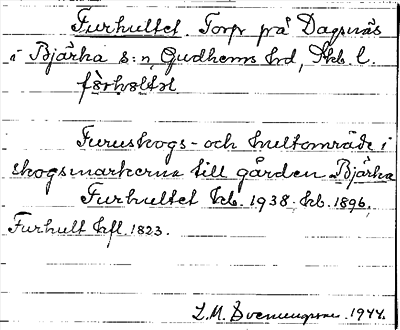 Furhultet. Torp på Dagsnäs
i Bjärka s:n, Gudhems hd, Skb. l.
Furuskogs- och hultområde i
skogsmarkerna till gården Bjärka
Furhultet kb. 1938, kb. 1896,
Furhult hfl. 1823.
L.M. Svenungsson. 1944.